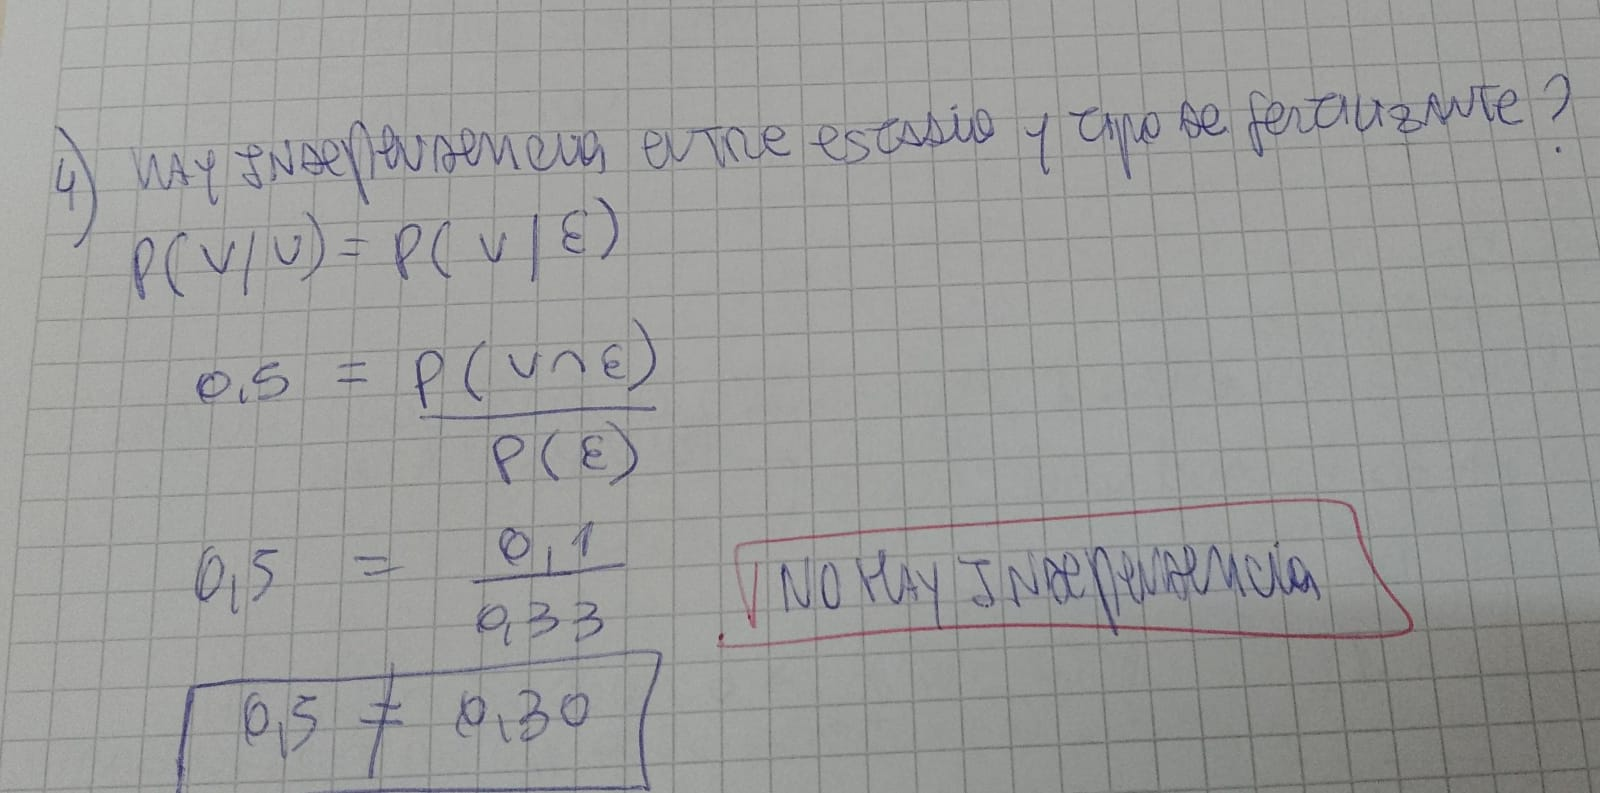 4) HAY INDEPENDENCIA ENTRE ESTADIO Y TIPO DE FERTILIZANTE?
P(V/U) = P(V/E)
0,5 = P(V∩E)
P(E)
0,5 = 0,1
0,33
NO HAY INDEPENDENCIA
0,5 ≠ 0,30